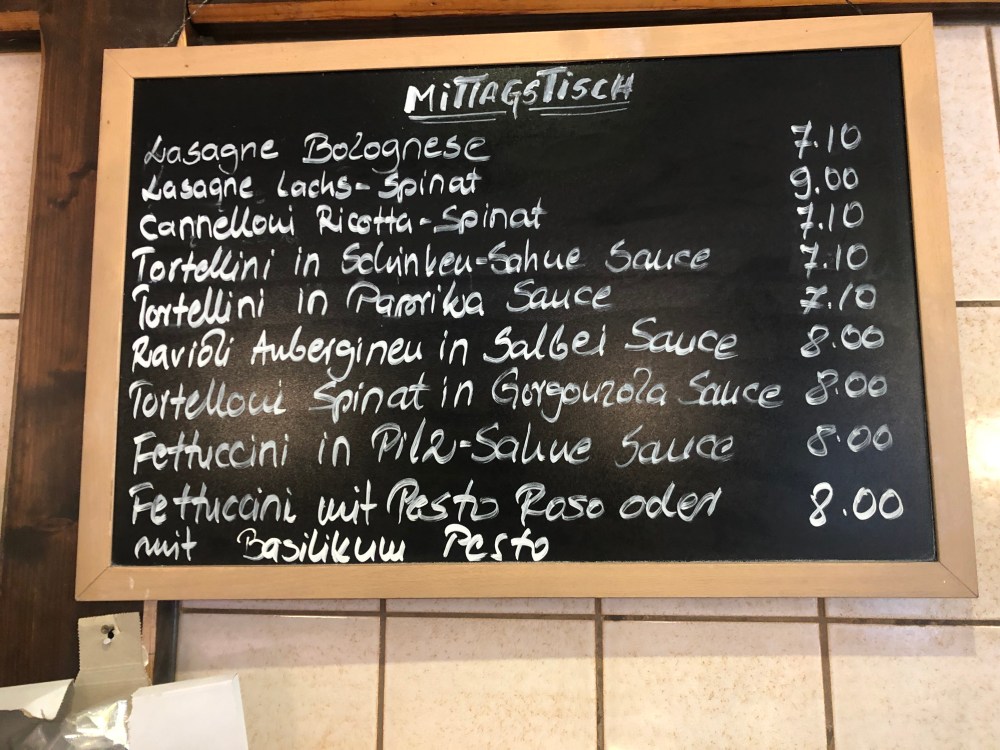 MITTAGSTISCH
Lasagne Bolognese 7.10
Lasagne Lachs-Spinat 9.00
Cannelloni Ricotta-Spinat 7.10
Tortellini in Schinken-Sahne Sauce 7.10
Tortellini in Paprika Sauce 7.10
Ravioli Auberginen in Salbei Sauce 8.00
Tortelloni Spinat in Gorgonzola Sauce 8.00
Fettuccini in Pilz-Sahne Sauce 8.00
Fettuccini mit Pesto Roso oder 8.00
mit Basilikum Pesto